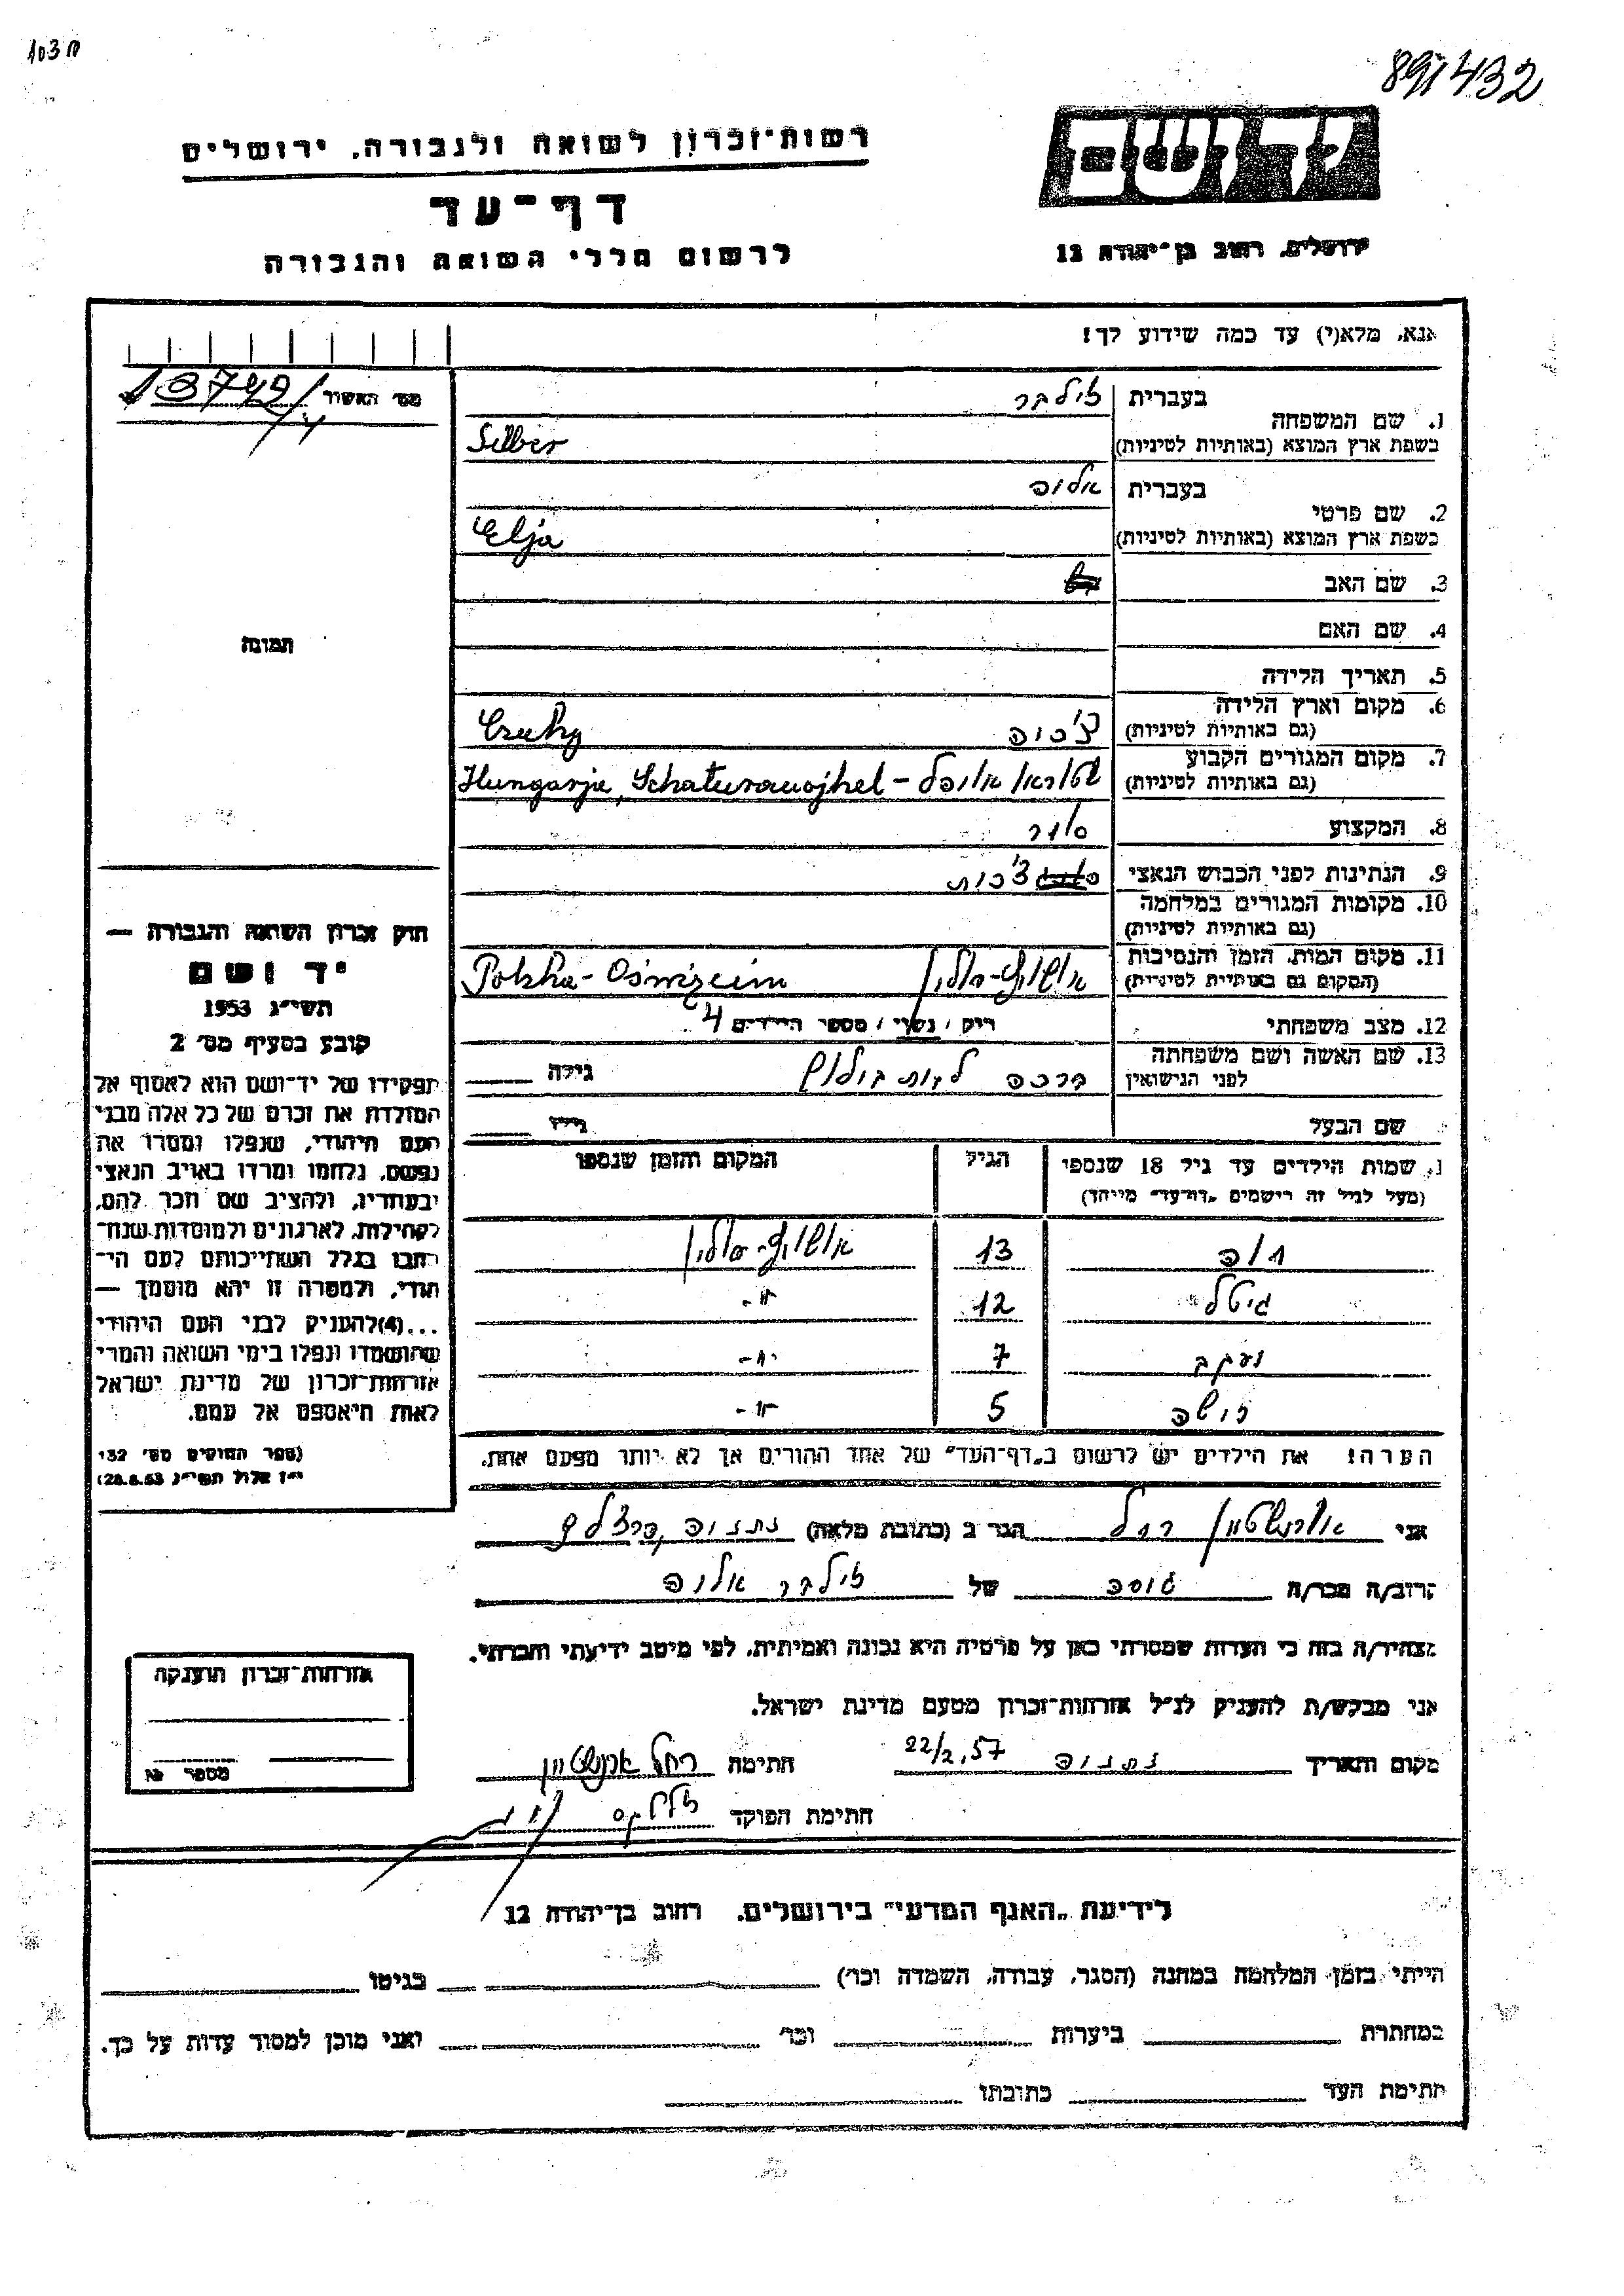 891432
יד ושם
רשות־זכרון לשואה ולגבורה, ירושלים
דף־עד
לרשום חללי השואה והגבורה
ירושלים, רחוב בן־יהודה 12
אנא, מלא(י) עד כמה שידוע לך!
מס׳ האשור
1. שם המשפחה
בעברית זילבר
בשפת ארץ המוצא (באותיות לטיניות) Silber
2. שם פרטי
בעברית אליה
בשפת ארץ המוצא (באותיות לטיניות) Elja
3. שם האב
4. שם האם
תמונה
5. תאריך הלידה
6. מקום וארץ הלידה
(גם באותיות לטיניות) צ'כיה
7. מקום המגורים הקבוע
(גם באותיות לטיניות) Hungarje, Schaturauojhel -
8. המקצוע סוחר
9. הנתינות לפני הכבוש הנאצי צ'כית
10. מקומות המגורים במלחמה
(גם באותיות לטיניות)
11. מקום המות, הזמן והנסיבות
(המקום גם באותיות לטיניות) אושויץ-פולין Polska-Oświęcim
12. מצב משפחתי רווק / נשוי / מספר הילדים 4
13. שם האשה ושם משפחתה
לפני הנישואין ברכה לבית גילה
שם הבעל גילו
שמות הילדים עד גיל 18 שנספו הגיל המקום והזמן שנספו
(מעל לגיל זה רישמים „דף־עד״ מייחד)
חיה 13 אושויץ-פולין
גיטל 12 -"-
יעקב 7 -"-
5 -"-
הערה! את הילדים יש לרשום ב„דף־העד״ של אחד ההורים אך לא יותר מפעם אחת.
חוק זכרון השואה והגבורה —
יד ושם
תשי״ג 1953
קובע בסעיף מס׳ 2
תפקידו של יד־ושם הוא לאסוף אל
המולדת את זכרם של כל אלה מבני
העם היהודי, שנפלו ומסרו את
נפשם, נלחמו ומרדו באויב הנאצי
ובעוזריו, ולהציב שם וזכר להם,
לקהילות, לארגונים ולמוסדות שנח־
רבו בגלל השתייכותם לעם היה־
הודי, ולמטרה זו יהא מוסמך —
...(4)להעניק לבני העם היהודי
שהושמדו ונפלו בימי השואה והמרי
אזרחות־זכרון של מדינת ישראל
לאות היאספם אל עמם.
(ספר החוקים מס׳ 132
י״ז אלול תשי״ג 28.8.53)
אני רחל הגר ב (כתובת מלאה) נתניה,
קרוב/ה מכר/ה גיסה של זילבר אליה
מצהיר/ה בזה כי העדות שמסרתי כאן על פרטיה היא נכונה ואמיתית, לפי מיטב ידיעתי והכרתי.
אני מבקש/ת להעניק לנ״ל אזרחות־זכרון מטעם מדינת ישראל.
מקום ותאריך נתניה 22/2.57 חתימה רחל
חתימת הפוקד
אזרחות־זכרון הוענקה
מספר
לידיעת „האגף המדעי״ בירושלים, רחוב בן־יהודה 12
הייתי בזמן המלחמה במחנה (הסגר, עבודה, השמדה וכו׳) בגיטו
במחתרת ביערות וכו׳ ואני מוכן למסור עדות על כך.
חתימת העד כתובתו